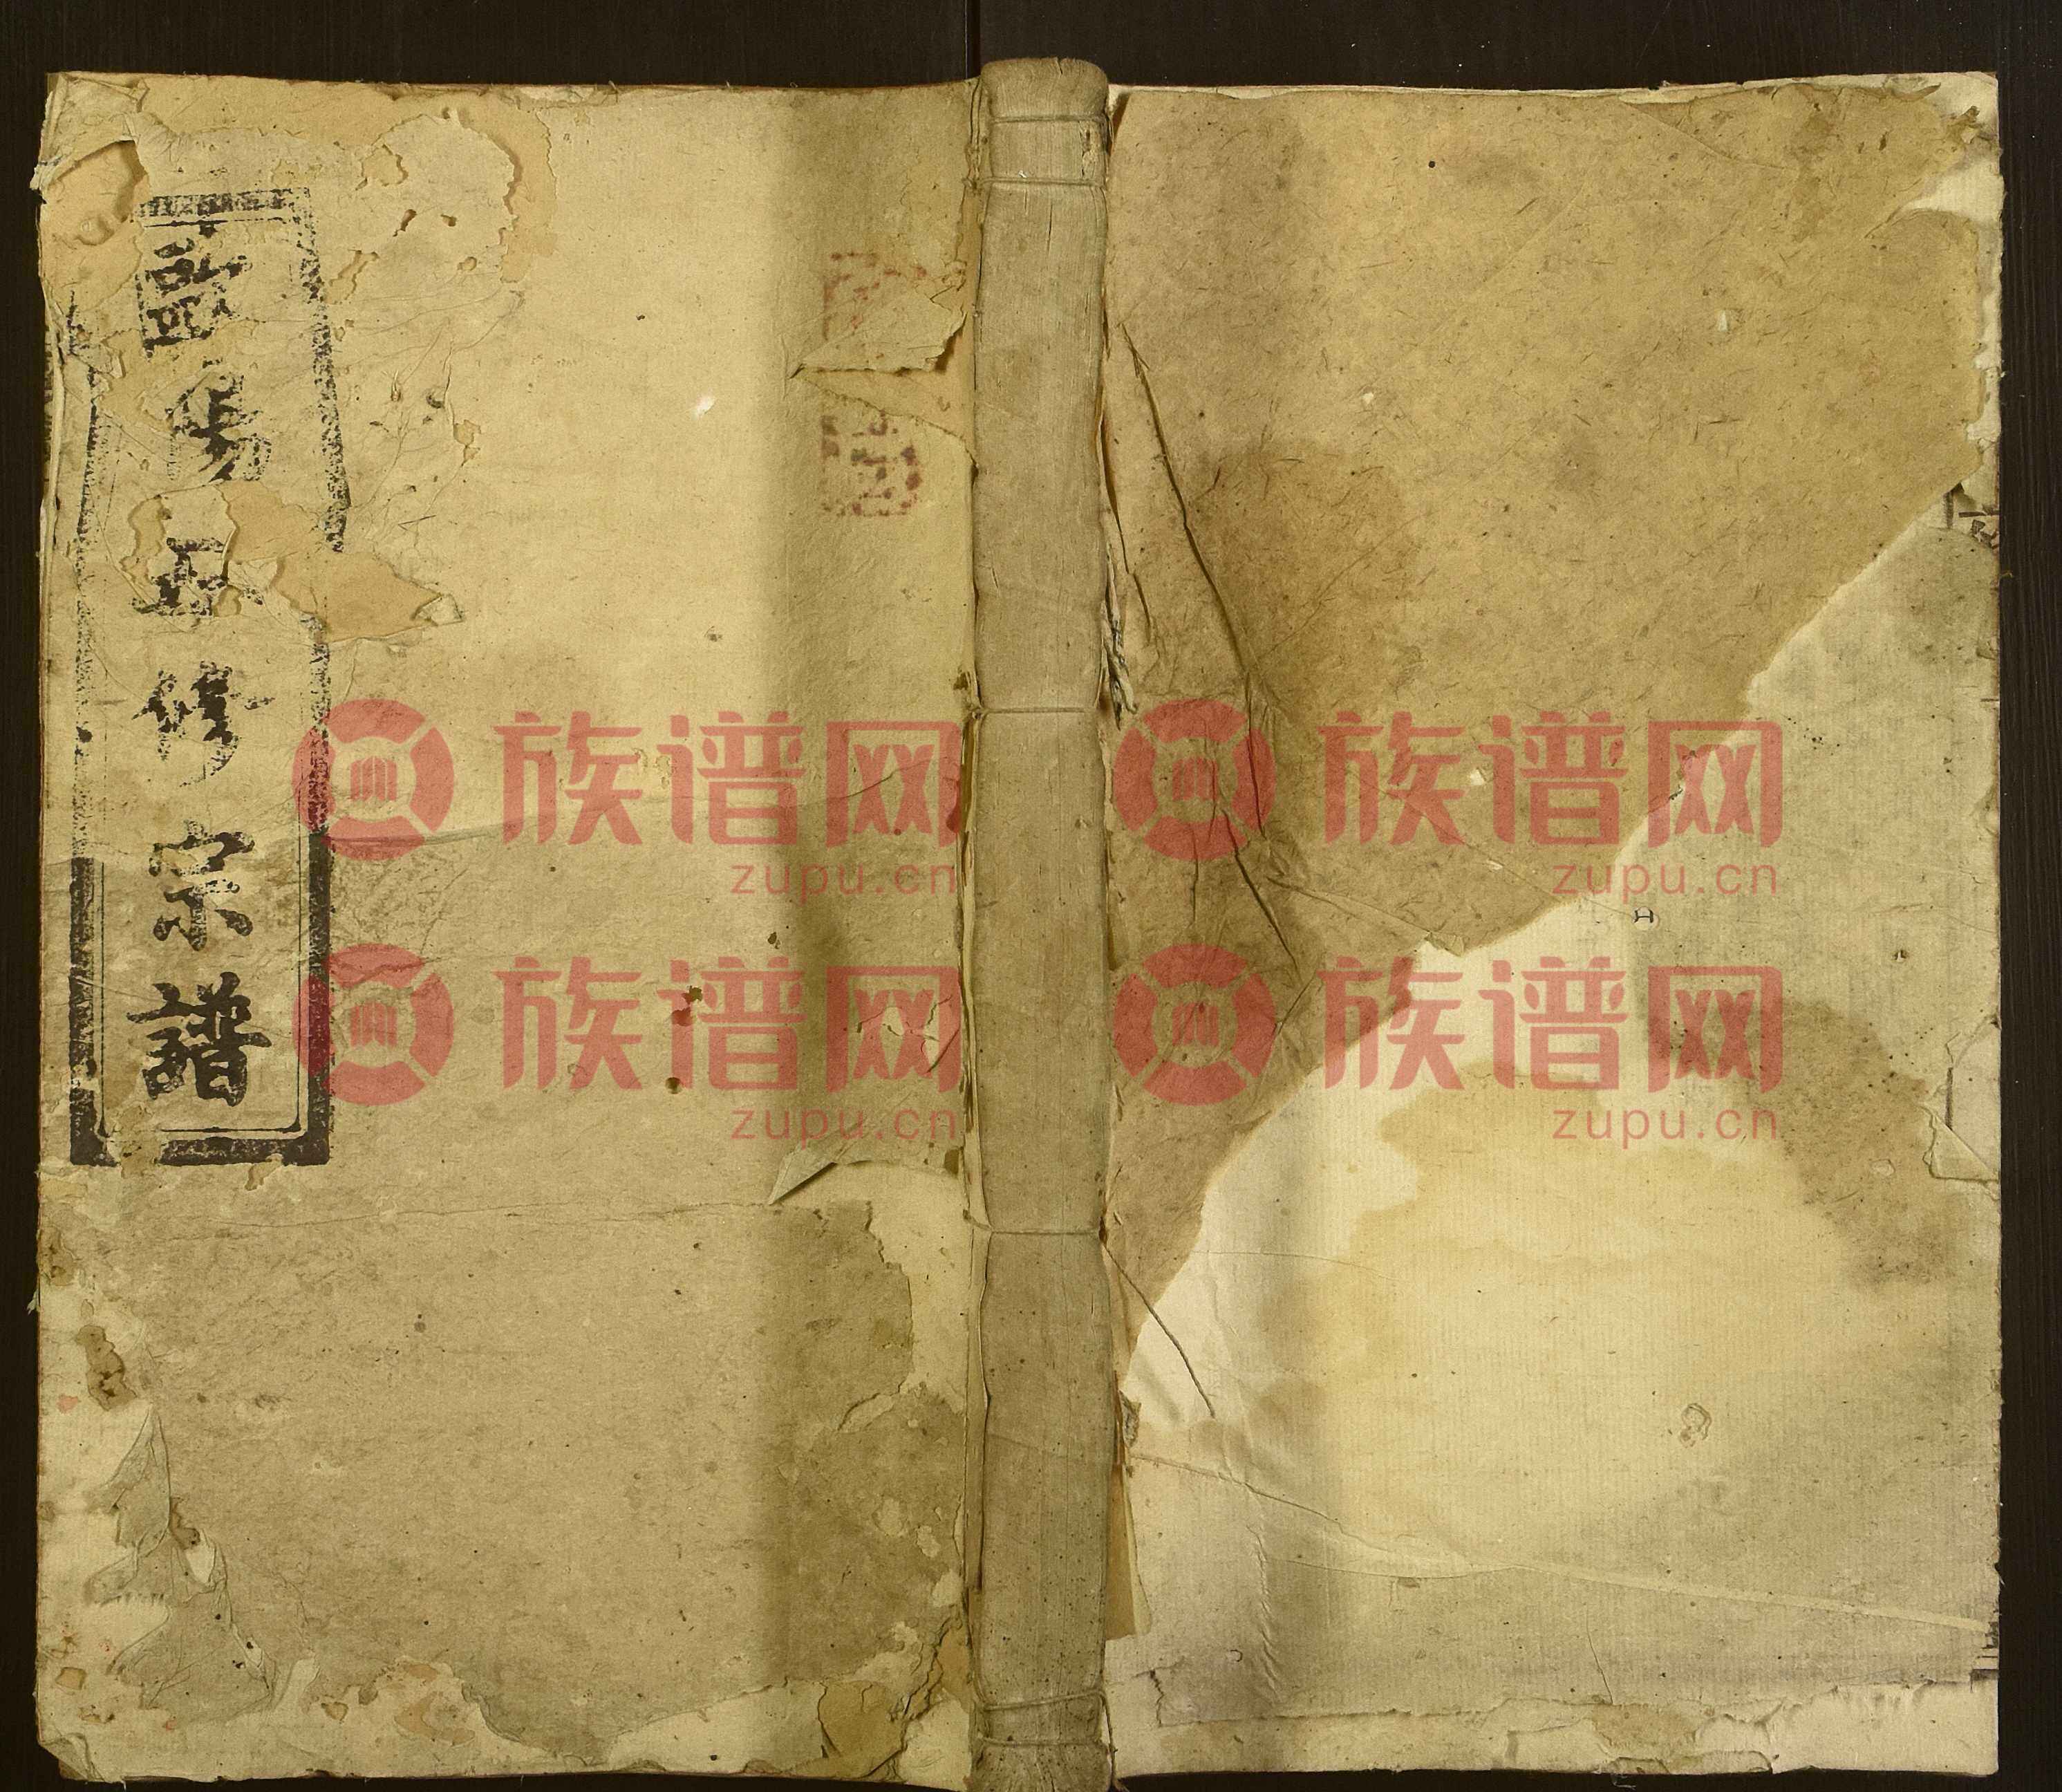 歐陽五修宗譜
族谱网 zupu.cn
族谱网 zupu.cn
族谱网 zupu.cn
族谱网 zupu.cn